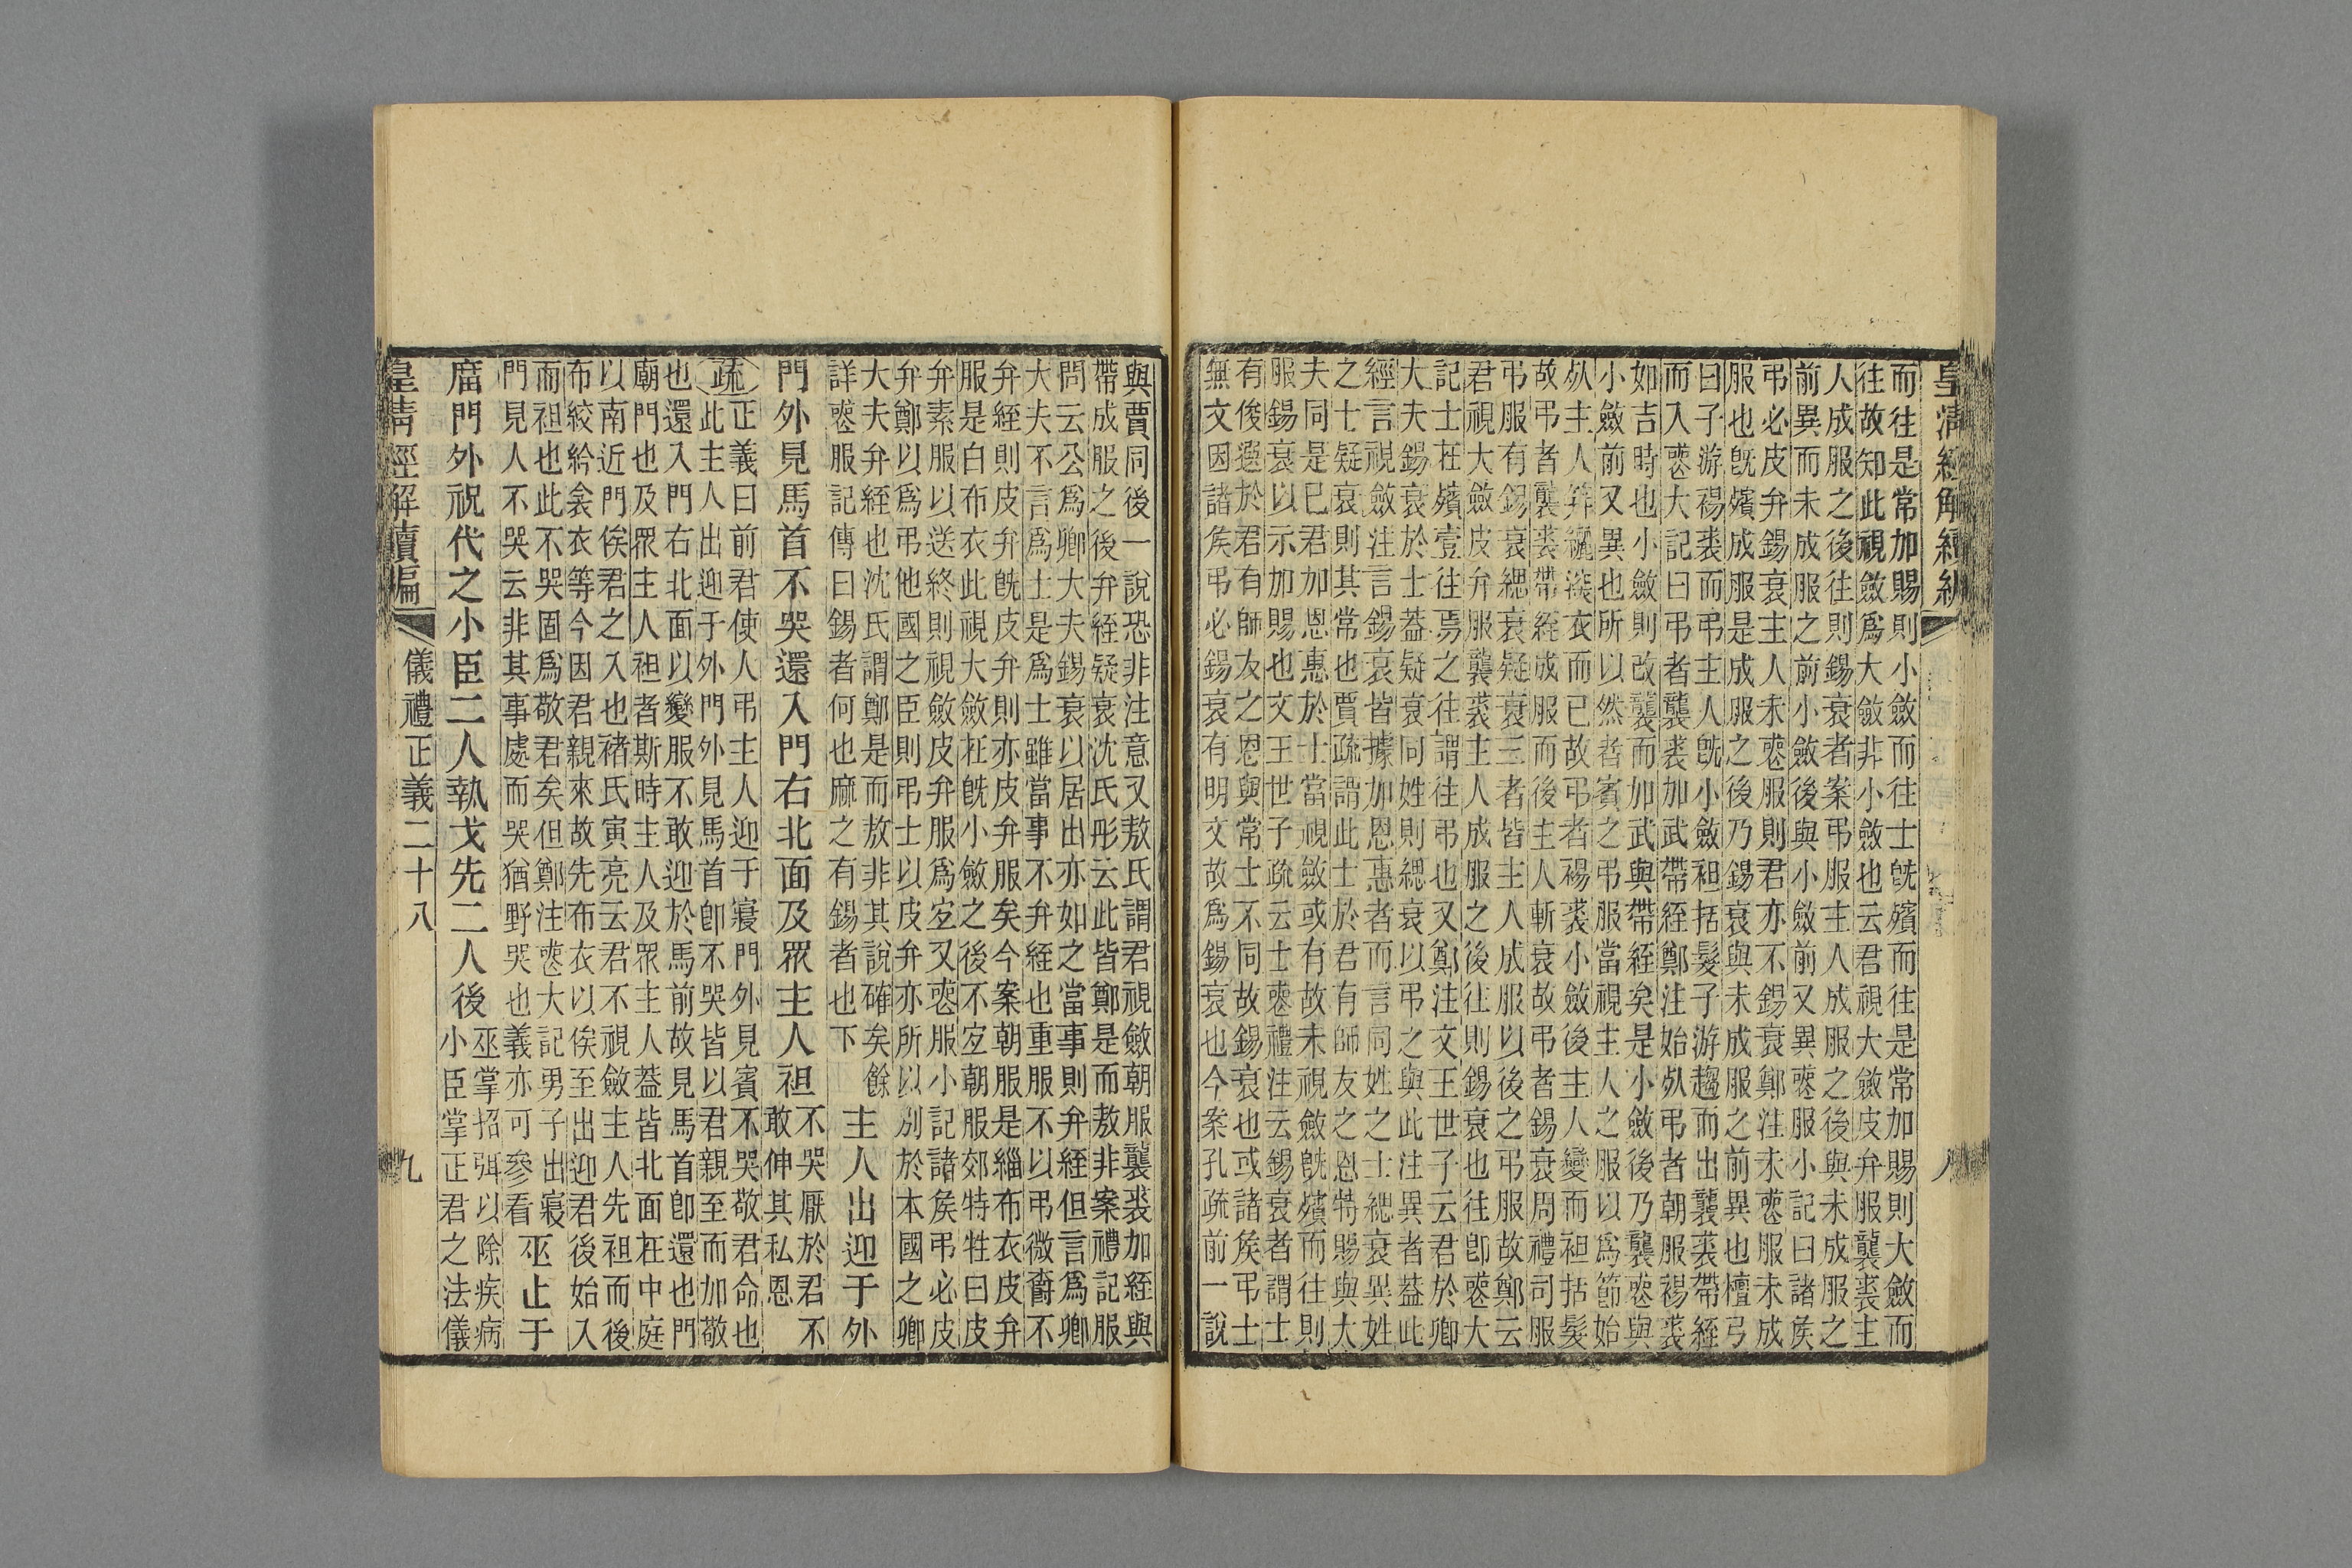 皇清經解續編
八
而往是常加賜則小斂而往士旣殯而往是常加賜則大斂而
往故知此視斂爲大斂非小斂也云君視大斂皮弁服襲裘主
人成服之後往則錫衰者案弔服主人成服之後與未成服之
前異而未成服之前小斂後與小斂前又異喪服小記曰諸侯
弔必皮弁錫衰主人未喪服則君亦不錫衰鄭注未喪服未成
服也旣殯成服是成服之後乃錫衰與未成服之前異也檀弓
曰子游裼裘而弔主人旣小斂袒括髮子游趨而出襲裘帶絰
而入喪大記曰弔者襲裘加武帶絰鄭注始死弔者朝服裼裘
如吉時也小斂則改襲而加武與帶絰矣是小斂後乃襲裘與
小斂前又異也所以然者賓之弔服當視主人之服以爲節始
死主人筓纚深衣而已故弔者裼裘小斂後主人變而袒括髮
故弔者襲裘帶絰成服而後主人斬衰故弔者錫衰周禮司服
弔服有錫衰緦衰疑衰三者皆主人成服以後之弔服故鄭云
君視大斂皮弁服襲裘主人成服之後往則錫衰也往卽喪大
記士在殯壹往焉之往謂往弔也又鄭注文王世子云君於卿
大夫錫衰於士蓋疑衰同姓則緦衰以弔之與此注異者蓋此
經言視斂注言錫衰皆據加恩惠者而言同姓之士緦衰異姓
之士疑衰則其常也賈疏謂此士於君有師友之恩特賜與大
夫同是巳君加恩惠於士當視斂或有故未視斂旣殯而往則
服錫衰以示加賜也文王世子疏云士喪禮注云錫衰者謂士
有俊選於君有師友之恩與常士不同故錫衰也或諸侯弔士
無文因諸侯弔必錫衰有明文故爲錫衰也今案孔疏前一說
與賈同後一說恐非注意又敖氏謂君視斂朝服襲裘加絰與
帶成服之後弁絰疑衰沈氏彤云此皆鄭是而敖非案禮記服
問云公爲卿大夫錫衰以居出亦如之當事則弁絰但言爲卿
大夫不言爲士是爲士雖當事不弁絰也重服不以弔微賤不
弁絰則皮弁旣皮弁則亦皮弁服矣今案朝服是緇布衣皮弁
服是白布衣此視大斂在旣小斂之後不宐朝服郊特牲曰皮
弁素服以送終則視斂皮弁服爲宐又喪服小記諸侯弔必皮
弁鄭以爲弔他國之臣則弔士以皮弁亦所以別於本國之卿
大夫弁絰也沈氏謂鄭是而敖非其說確矣餘
詳喪服記傳曰錫者何也麻之有錫者也下
主人出迎于外
門外見馬首不哭還入門右北面及眾主人袒
不哭厭於君不
敢伸其私恩
疏
正義曰前君使人弔主人迎于寢門外見賓不哭敬君命也
此主人出迎于外門外見馬首卽不哭皆以君親至而加敬
也還入門右北面以變服不敢迎於馬前故見馬首卽還也門
廟門也及眾主人袒者斯時主人及眾主人蓋皆北面在中庭
以南近門俟君之入也褚氏寅亮云君不視斂主人先袒而後
布絞紟衾衣等今因君親來故先布衣以俟至出迎君後始入
而袒也此不哭固爲敬君矣但鄭注喪大記男子出寢
門見人不哭云非其事處而哭猶野哭也義亦可參看
巫止于
廟門外祝代之小臣二人執戈先二人後
巫掌招弭以除疾病
小臣掌正君之法儀
皇清經解續編
儀禮正義二十八
九